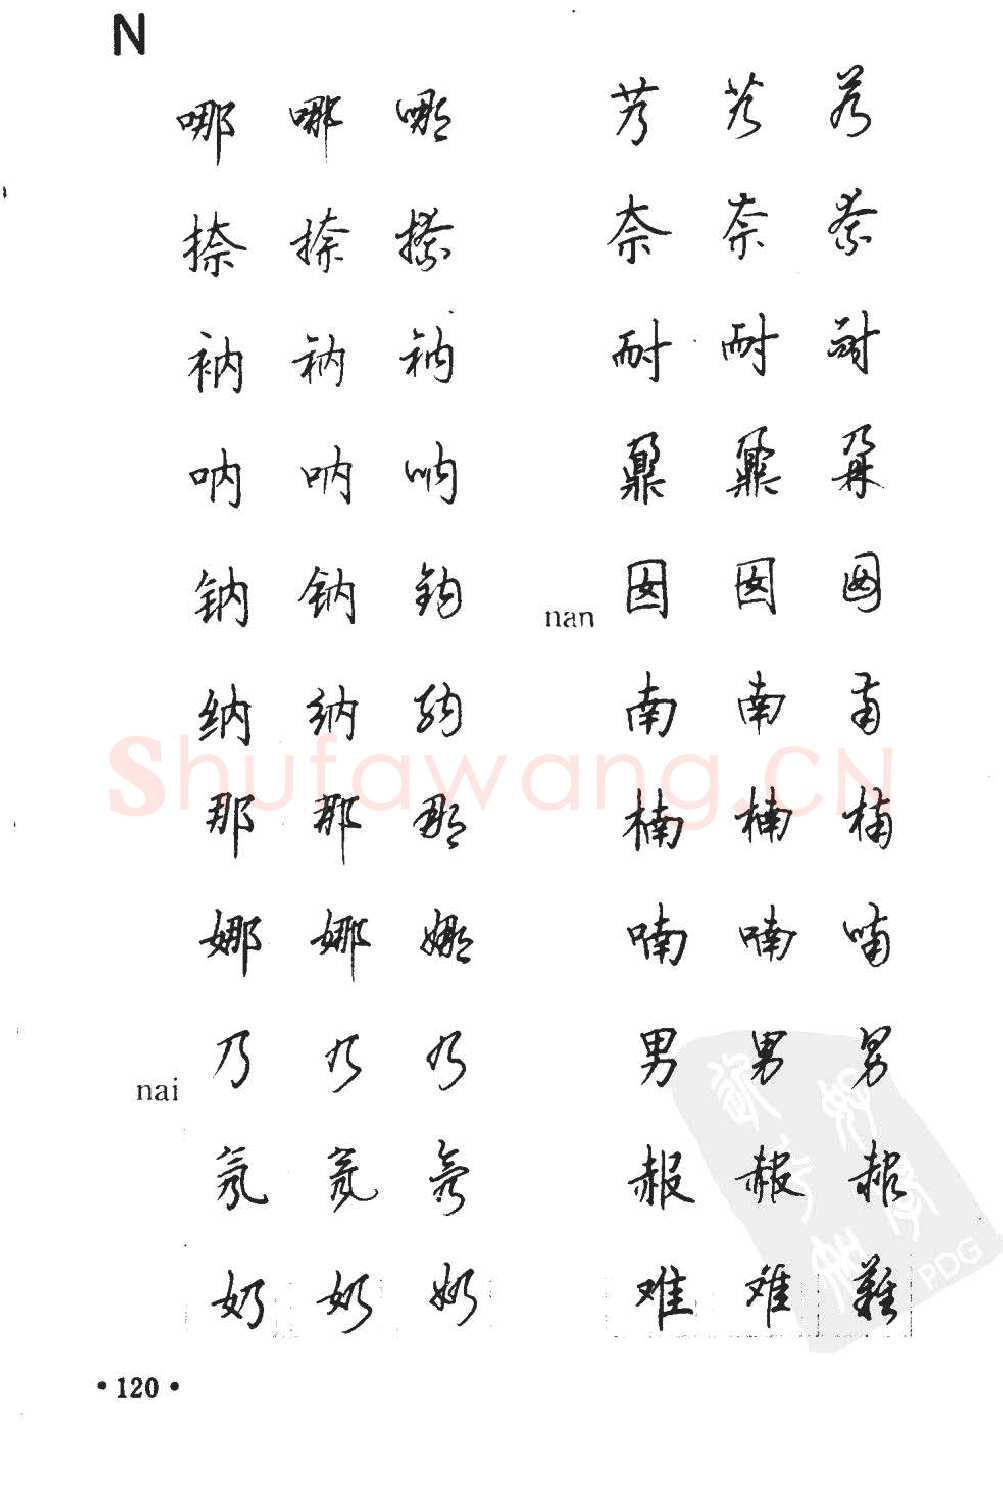 N
哪 哪 哪
捺 捺 捺
衲 衲 衲
呐 呐 呐
钠 钠 钠
纳 纳 纳
那 那 那
娜 娜 娜
nai
乃 乃 乃
氖 氖 氖
奶 奶 奶
艿 艿 艿
奈 奈 奈
耐 耐 耐
鼐 鼐 鼐
nan
囡 囡 囡
南 南 南
楠 楠 楠
喃 喃 喃
男 男 男
赧 赧 赧
难 难 難
·120·
Shufawang.CN
PDG